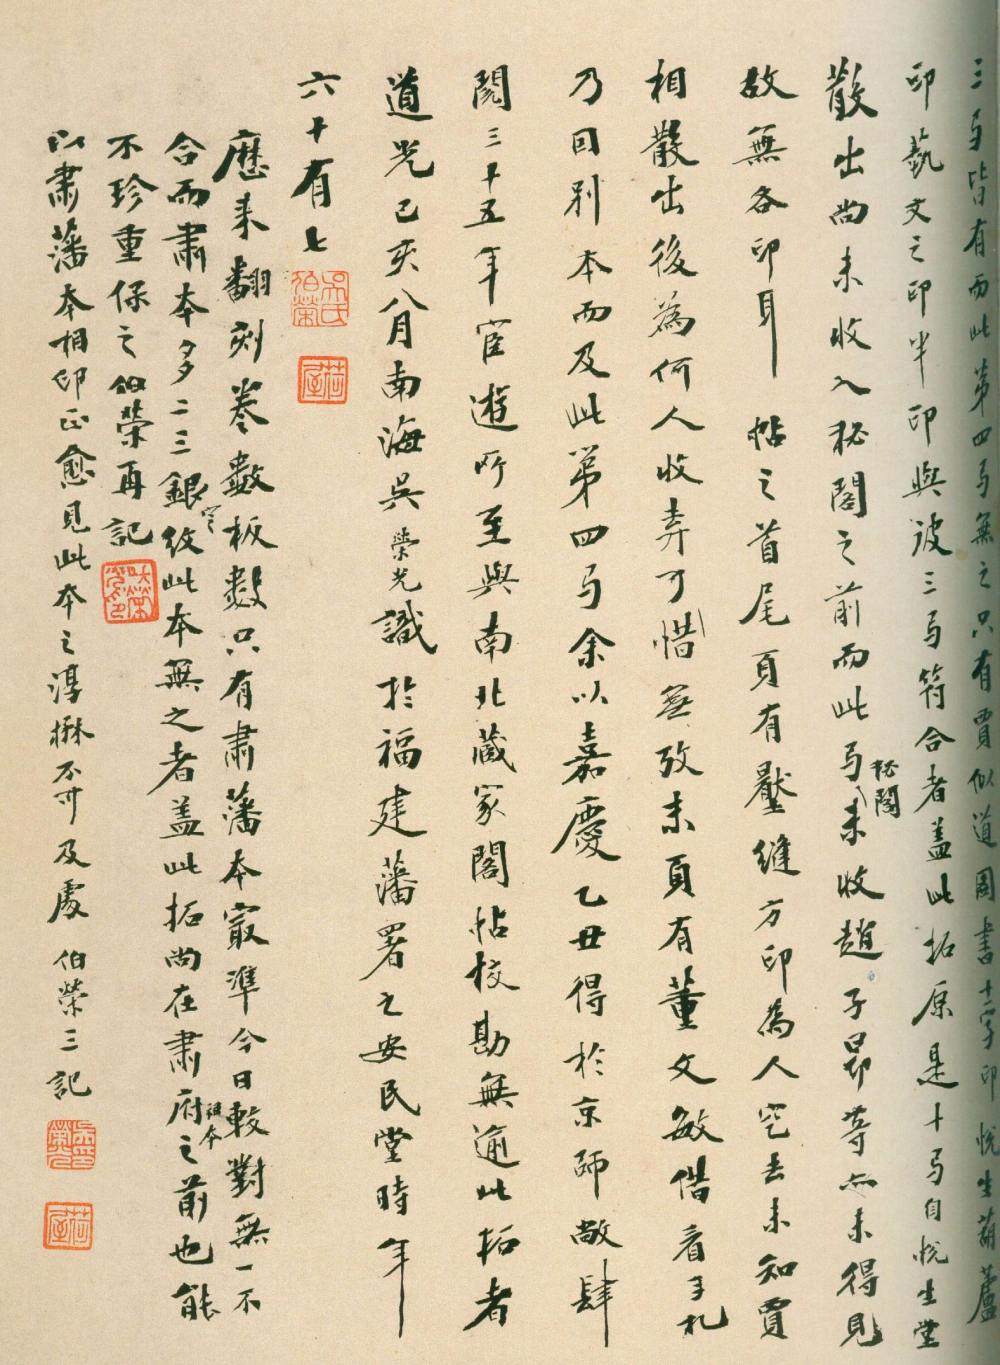 三馬皆有而此第四馬無之只有賈似道圖書十二字印悅生葫蘆
印藝文之印半印與彼三馬符合者蓋此拓原是十馬自悅生堂
散出尚未收入秘閣之前而此馬未收秘閣趙子昂等亦未得見
故無各印耳 帖之首尾頁有壓縫方印為人挖去未知賈
相散出後為何人收弆可惜無攷末頁有董文敏借看手札
乃因別本而及此第四馬余以嘉慶乙丑得於京師敝肆
閱三十五年宦遊所至與南北藏家閣帖校勘無逾此拓者
道光己亥八月南海吳榮光識於福建藩署之安民堂時年
六十有七
吳氏伯榮
荷屋
歷來翻刻卷數板數只有肅藩本最準今日較對無一不
合而肅本多二三銀定紋此本無之者蓋此拓尚在肅府祖本之前也能
不珍重保之伯榮再記
吳榮光印
以肅藩本相印正愈見此本之淳楙不可及處 伯榮三記
吳榮光印
荷屋